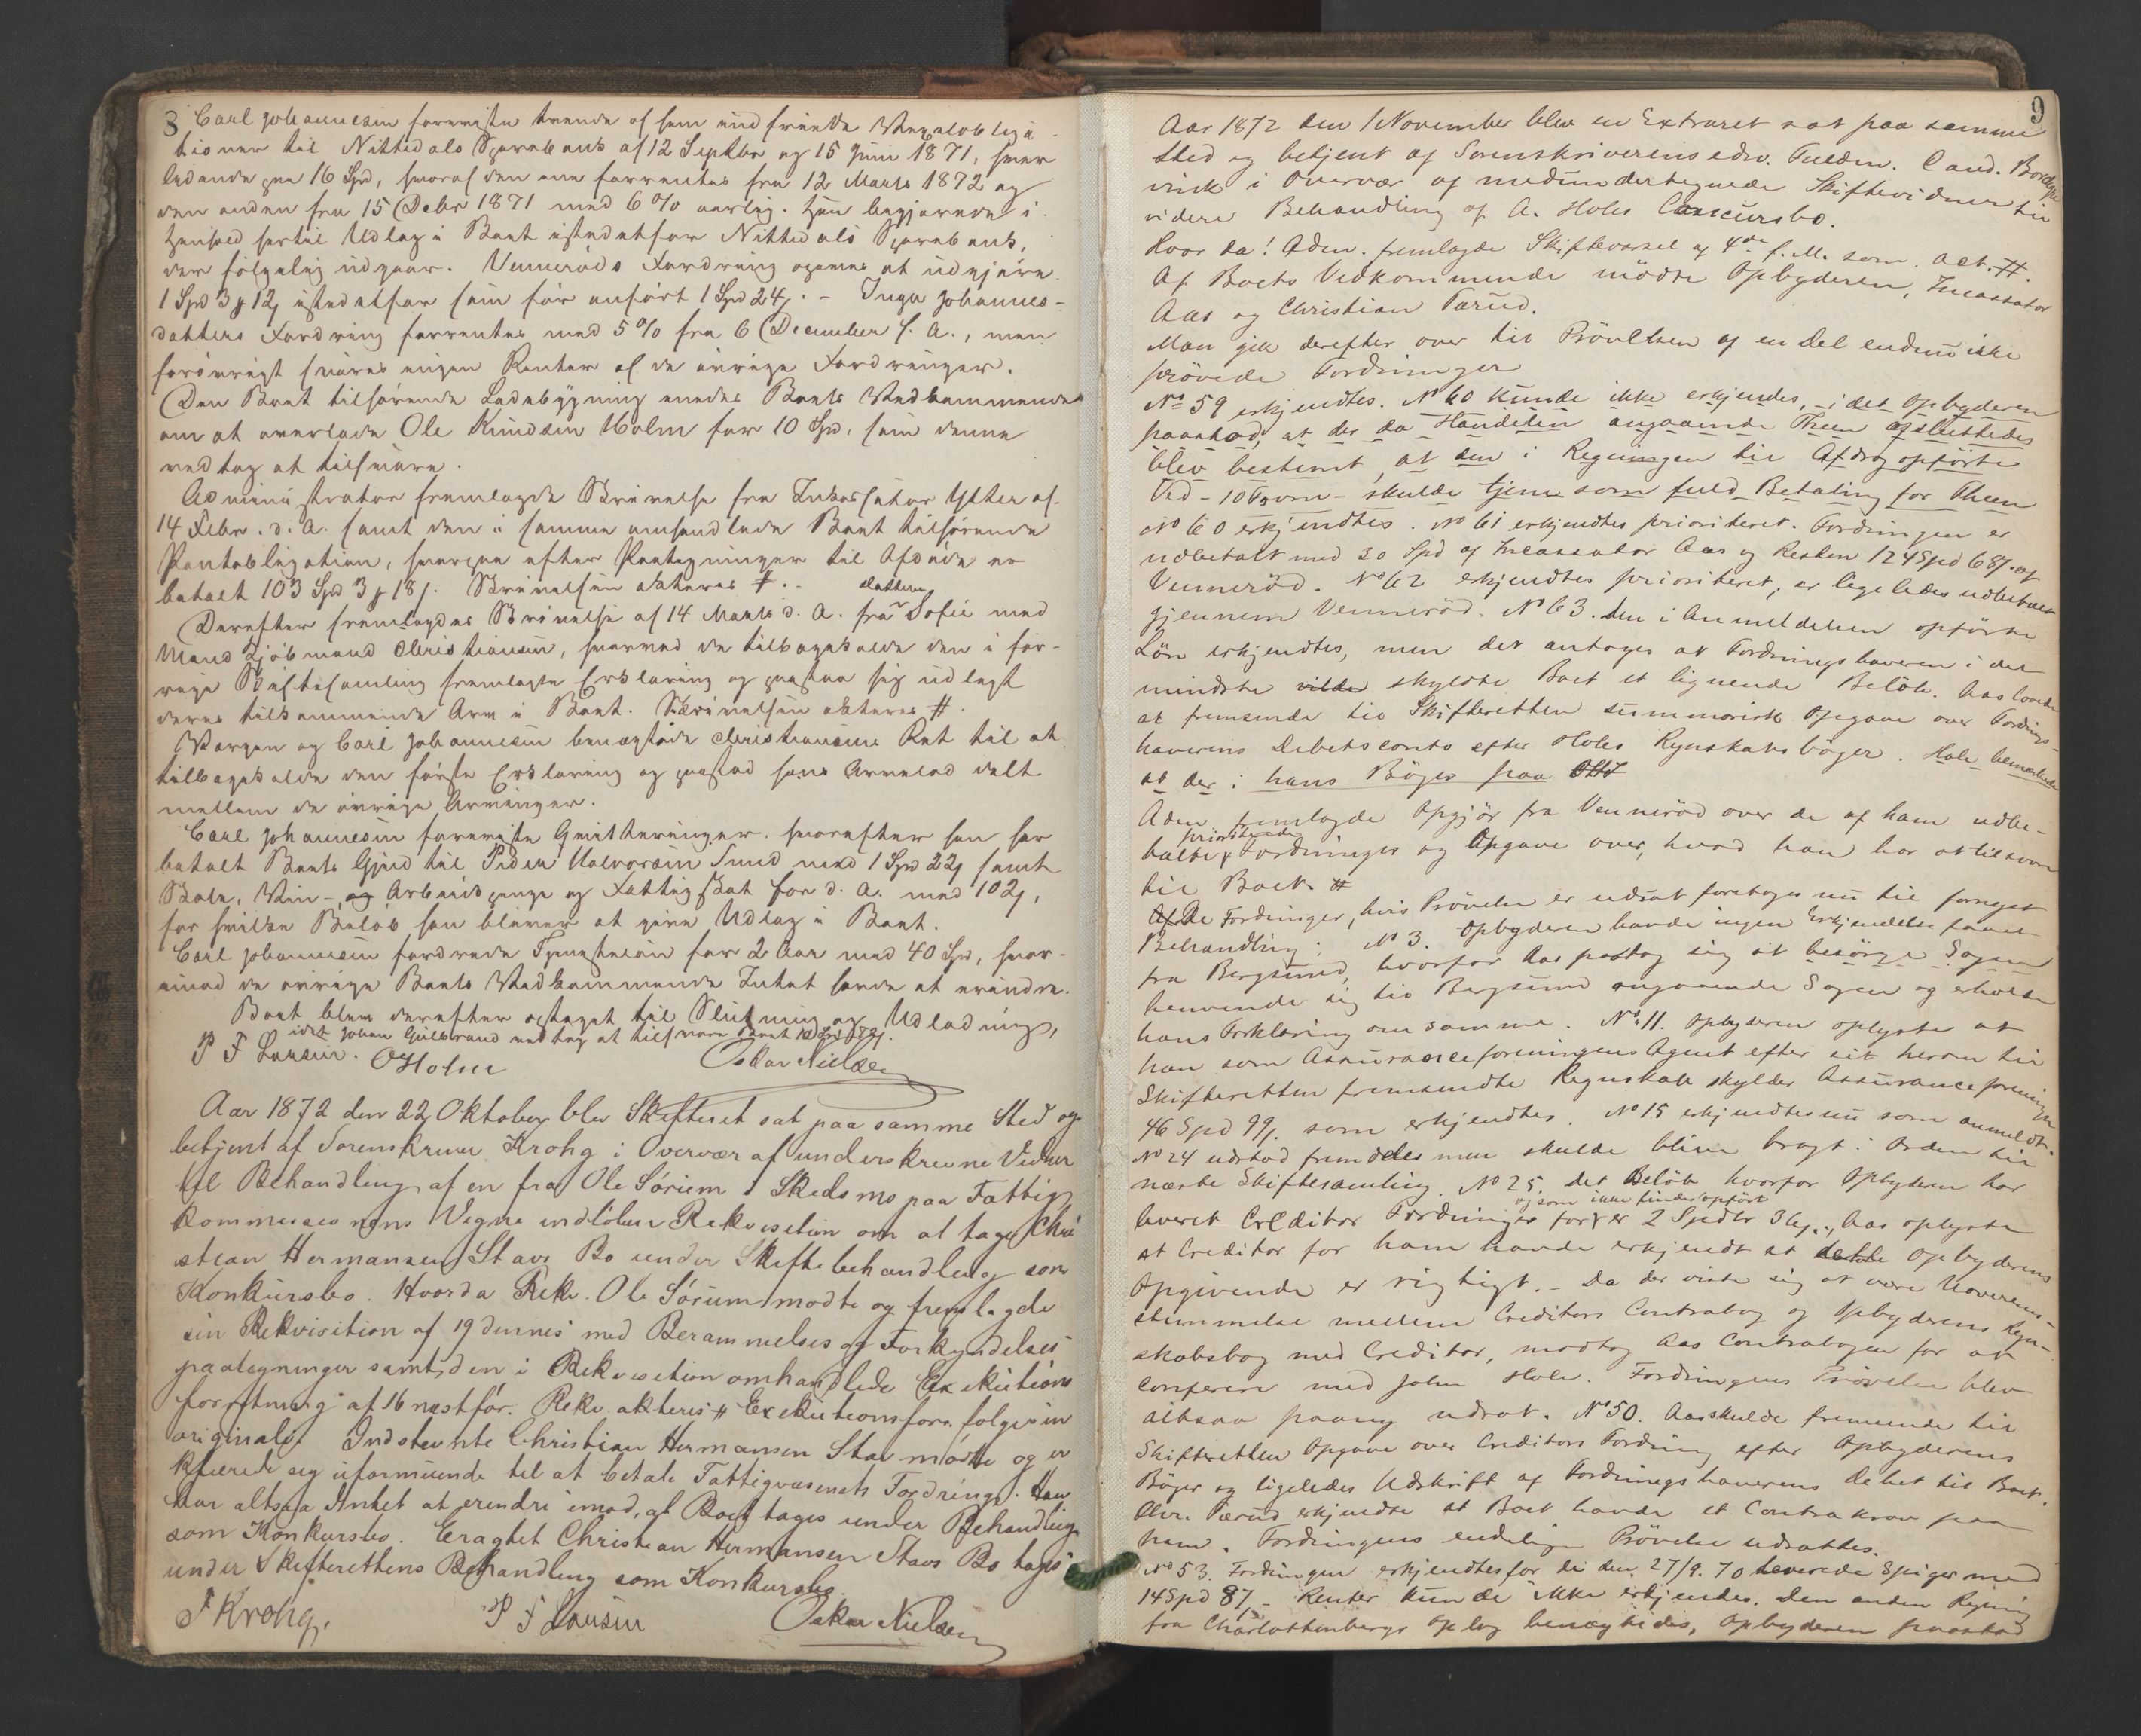 8 Carl Johannesen foreviste tvende af ham indfriede Vexelobliga-
tioner til Nittedals Sparebank af 12 Septbr og 15 Juni 1871, hver
lydende paa 16 Spd, hvoraf den ene forrentes fra 12 Marts 1872 og
den anden fra 15 Debr 1871 med 6 % aarlig. Han begjærede i
Henhold hertil Udlæg i Boet istedetfor Nittedals Sparebank,
der følgelig udgaar. Vennerøds Fordring opgives at udgjøre
1 Spd 3 12 istedetfor som før anført 1 Spd 24. - Inger Johannes-
datters Fordring forrentes med 5 % fra 6 December f. A., men
forøvrigt svares ingen Renter af de øvrige Fordringer.
Den Boet tilhørende Ladebygning enedes Boets Vedkommende
om at overlade Ole Knudsen Holm for 10 Spd, som denne
vedtog at tilsvare.
Administrator fremlagde Skrivelse fra Inkassator Ytter af
14 Febr. d. A. samt den i samme omhandlede Boet tilhørende
Pantobligation, hvorpaa efter Paategninger til Afdøde er
betalt 103 Spd 3 18. Skrivelsen akteres #. -
Derefter fremlagdes Skrivelse af 14 Marts d. A. fra datteren Sofie med
Mand Christiansen, hvorved de tilbagekalde den i for-
rige Skiftesamling fremlagte Erklæring og paastaa sig udlagt
deres tilkommende Arv i Boet. Skrivelsen akteres #.
Værgen og Carl Johannesen benægtede Christiansens Ret til at
tilbagekalde den første Erklæring og paastod hans Arvelod delt
mellem de øvrige Arvinger.
Carl Johannesen foreviste Qvitteringer, hvorefter han har
betalt Boets Gjæld til Peder Halvorsen med 1 Spd 22 samt
Skole, Vei-, og Arbeidspenge og Fattigskat for d. A. med 102,
for hvilke Beløb han bliver at give Udlæg i Boet.
Carl Johannesen fordrede Tjenesteløn for 2 Aar med 40 Spd, hvor-
imod de øvrige Boets Vedkommende Intet havde at erindre.
Boet blev derefter optaget til Slutning og Udlodning,
idet Johan Gulbrand vedtog at tilsvare Boet
P F Lousen. O Holm Oskar Nielsen
Aar 1872 den 22 Oktober blev Skifteret sat paa samme Sted og
betjent af Sorenskriver Krohg i Overvær af underskrevne Vidner
til Behandling af en fra Ole Sørum i Skedsmo paa Fattig
kommissionens Vegne indløben Rekvisition om at tage Chri
stian Hermansen Stavs Bo under Skiftebehandling som
Konkursbo. Hvorda Rekv. Ole Sørum mødte og fremlagde
sin Rekvisition af 19 dennes med Berammelses og Forkyndelses
paategninger samt den i Rekvisition omhandlede Exekutions
forretning af 16 næstfør. Rekv. akteres # Exekutionsforr. følger in
originali. Indstevnte Christian Hermansen Stav mødte og er
klærede sig uformuende til at betale Fattigvæsenets Fordring. Han
har altsaa Intet at erindre imod, at Boet tages under Behandling
som Konkursbo. Eragtet Christian Hermansen Stavs Bo tages
under Skifterettens Behandling som Konkursbo.
F Krohg. P F Lousen Oskar Nielsen
9
Aar 1872 den 1 November blev en Extraret sat paa samme
Sted og betjent af Sorenskriverens edsv. Fuldm. Cand. Borchgre
vink i Overvær af medundertegnede Skiftevidner til
videre Behandling af A. Holes Concursbo.
Hvor da! Adm. fremlagde Skiftevarsel af 4de f. M. som Act. #.
Af Boets Vedkommende mødte Opbyderen, Incassator
Aas og Christian Tærud.
Man gik derefter over til Prövelsen af en Del endnu ikke
prövede Fordringer
No 59 erkjendtes. No 60 kunde ikke erkjendes, i det Opbyderen
paastod, at der da Handelen angaaende Theen afsluttedes
blev bestemt, at den i Regningen til Afdrag opförte
Ved - 10 Favne - skulde tjene som fuld Betaling for Theen
No 60 erkjendtes. No 61 erkjendtes prioriteret. Fordringen er
udbetalt med 30 Spd af Incassator Aas og Resten 124 Spd 68 af
Vennerød. No 62 erkjendtes prioriteret, er ligeledes udbetalt
gjennem Vennerød. No 63. den i Anmeldelsen opförte
Lön erkjendtes, men det antages at Fordringshaveren i det
mindste vilde skyldte Boet et lignende Belöb. Aas lovede
at fremsende til Skifteretten summarisk Opgave over Fordrings-
haverens Debetsconto efter Holes Regnskabsböger. Hole bemærkede
at der i hans Böger paa
Adm. fremlagde Opgjör fra Vennerød over de af ham udbe-
talte prioriterede Fordringer og Opgave over, hvad han har at tilsvare
til Boet. #
Af De Fordringer, hvis Prövelse er udsat foretoges nu til fornyet
Behandling: No 3. Opbyderen havde ingen Erkjendelse faaet
fra Bergsund, hvorfor Aas paatog sig at besörge Sagen
henvende sig til Bergsund angaaende Sagen og erholde
hans Forklaring om samme. No 11. Opbyderen oplyste at
han som Assuranceforeningens Agent efter sit herom til
Skifteretten fremsendte Regnskab skylder Assuranceforeningen
46 Spd 99. som erkjendtes. No 15 erkjendtes nu som anmeldt.
No 24 udstod fremdeles men skulde blive bragt i Orden til
næste Skiftesamling. No 25. det Belöb hvorfor Opbyderen har
leveret Creditor Fordringer for og som ikke findes opfört er 2 Spdlr 36., Aas oplyste
at Creditor for ham havde erkjendt at dette Opbyderens
Opgivende er rigtigt. - Da der viste sig at være Uoverens-
stemmelse mellem Creditors Contrabog og Opbyderens Regn-
skabsbog med Creditor, modtog Aas Contrabogen for at
conferere med John Hole. Fordringens Prövelse blev
altsaa paany udsat. No 50. Aas skulde fremsende til
Skifteretten Opgave over Creditors Fordring efter Opbyderens
Böger og ligeledes Udskrift af Fordringshaverens Debet til Boet.
Chr. Tærud erkjendte at Boet havde et Contrakrav paa
ham. Fordringens endelige Prövelse udsattes.
No 53. Fordringen erkjendtes for de den 27/9. 70 leverede Spiger med
14 Spd 87 - Renter kunde ikke erkjendes. Den anden Regning
fra Charlottenbergs Oplag benægtedes, Opbyderen paastod